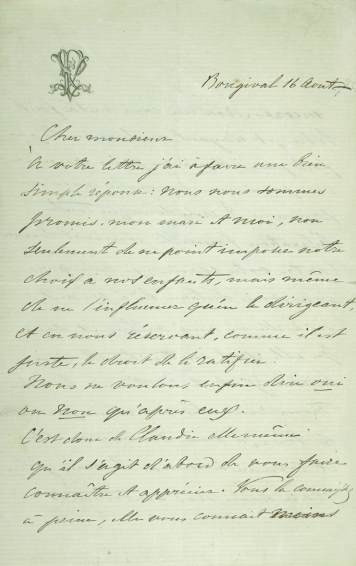 Bougival 16 Aout
Cher monsieur
A votre lettre j'ai à faire une bien
simple réponse: nous nous sommes
promis, mon mari et moi, non
seulement de ne point imposer notre
choix à nos enfants, mais même
de ne l'influencer qu'en le dirigeant,
et en nous réservant, comme il est
juste, le droit de le ratifier.
Nous ne voulons enfin dire oui
ou non qu'après eux.
C'est donc de Claudie elle même
qu'il s'agit d'abord de vous faire
connaître et apprécier. Vous la connaissez
à peine, elle vous connait moins